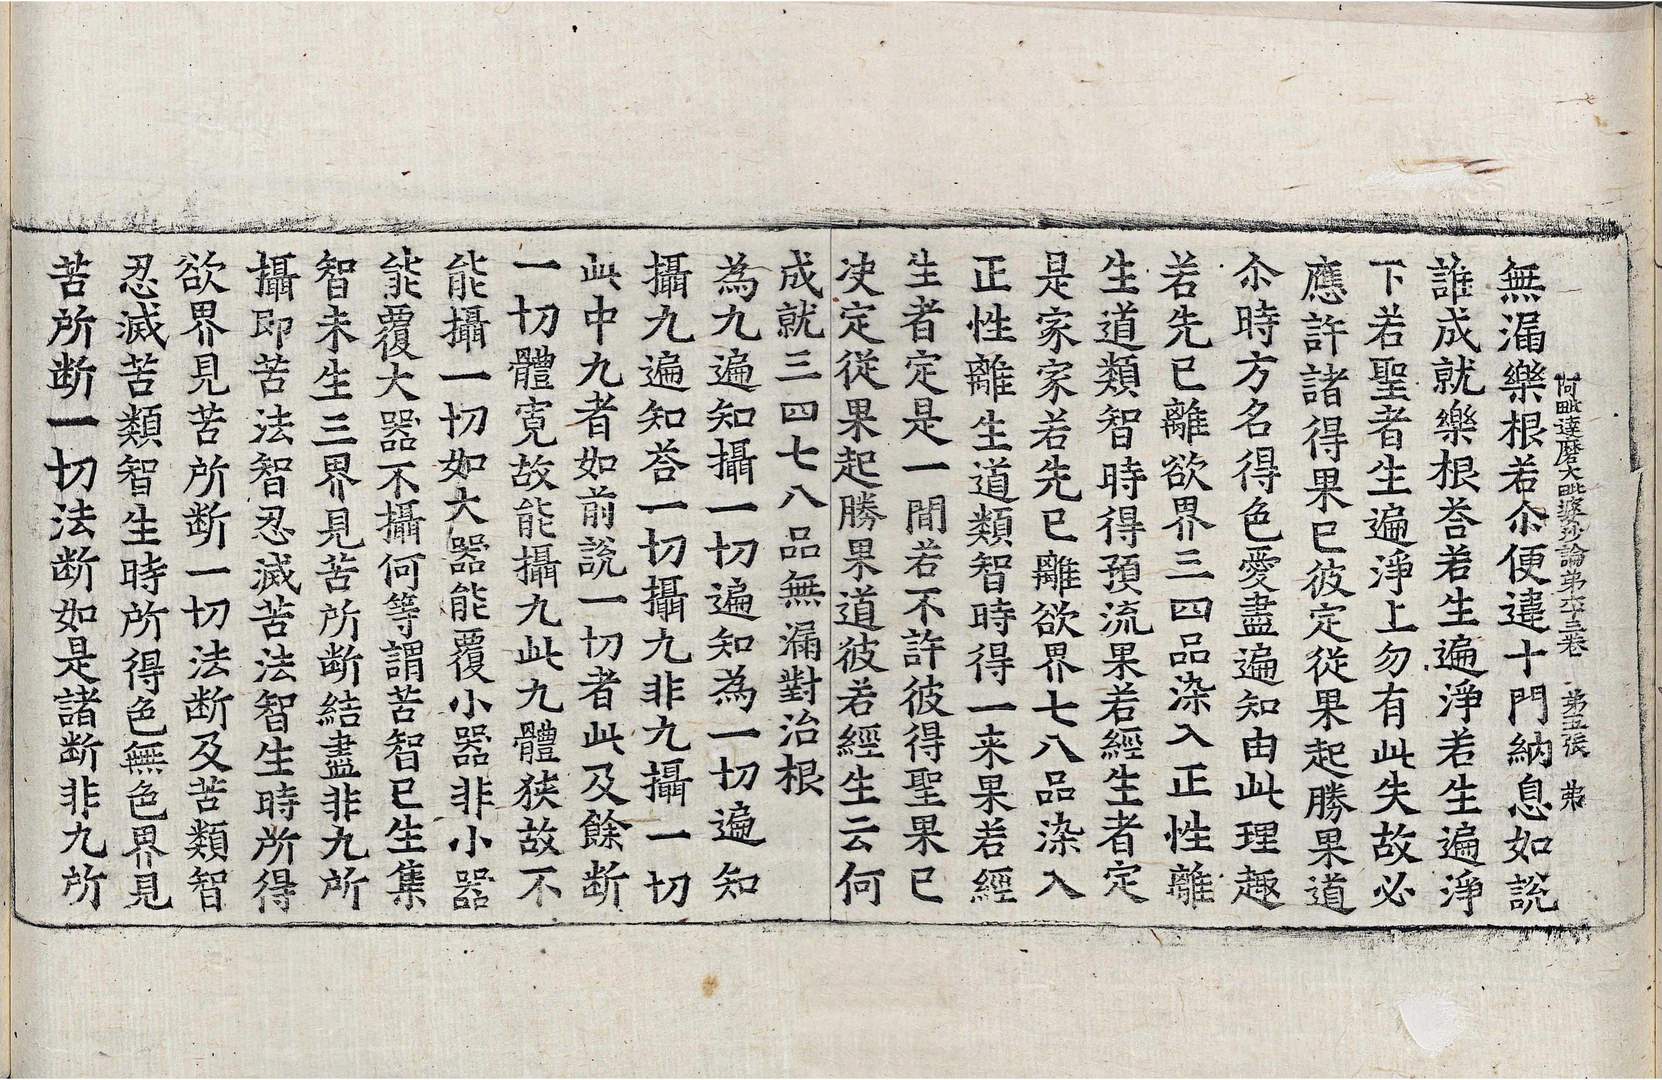 阿毗達磨大毗婆沙論第六十三卷 第五張 弟
無漏樂根若尒便違十門納息如說
誰成就樂根荅若生遍淨若生遍淨
下若聖者生遍淨上勿有此失故必
應許諸得果已彼定從果起勝果道
尒時方名得色愛盡遍知由此理趣
若先已離欲界三四品染入正性離
生道類智時得預流果若經生者定
是家家若先已離欲界七八品染入
正性離生道類智時得一来果若經
生者定是一間若不許彼得聖果已
决定從果起勝果道彼若經生云何
成就三四七八品無漏對治根
為九遍知攝一切遍知為一切遍知
攝九遍知荅一切攝九非九攝一切
此中九者如前說一切者此及餘断
一切體寬故能攝九此九體狹故不
能攝一切如大器能覆小器非小器
能覆大器不攝何等謂苦智已生集
智未生三界見苦所断結盡非九所
攝即苦法智忍滅苦法智生時所得
欲界見苦所断一切法断及苦類智
忍滅苦類智生時所得色無色界見
苦所断一切法断如是諸断非九所